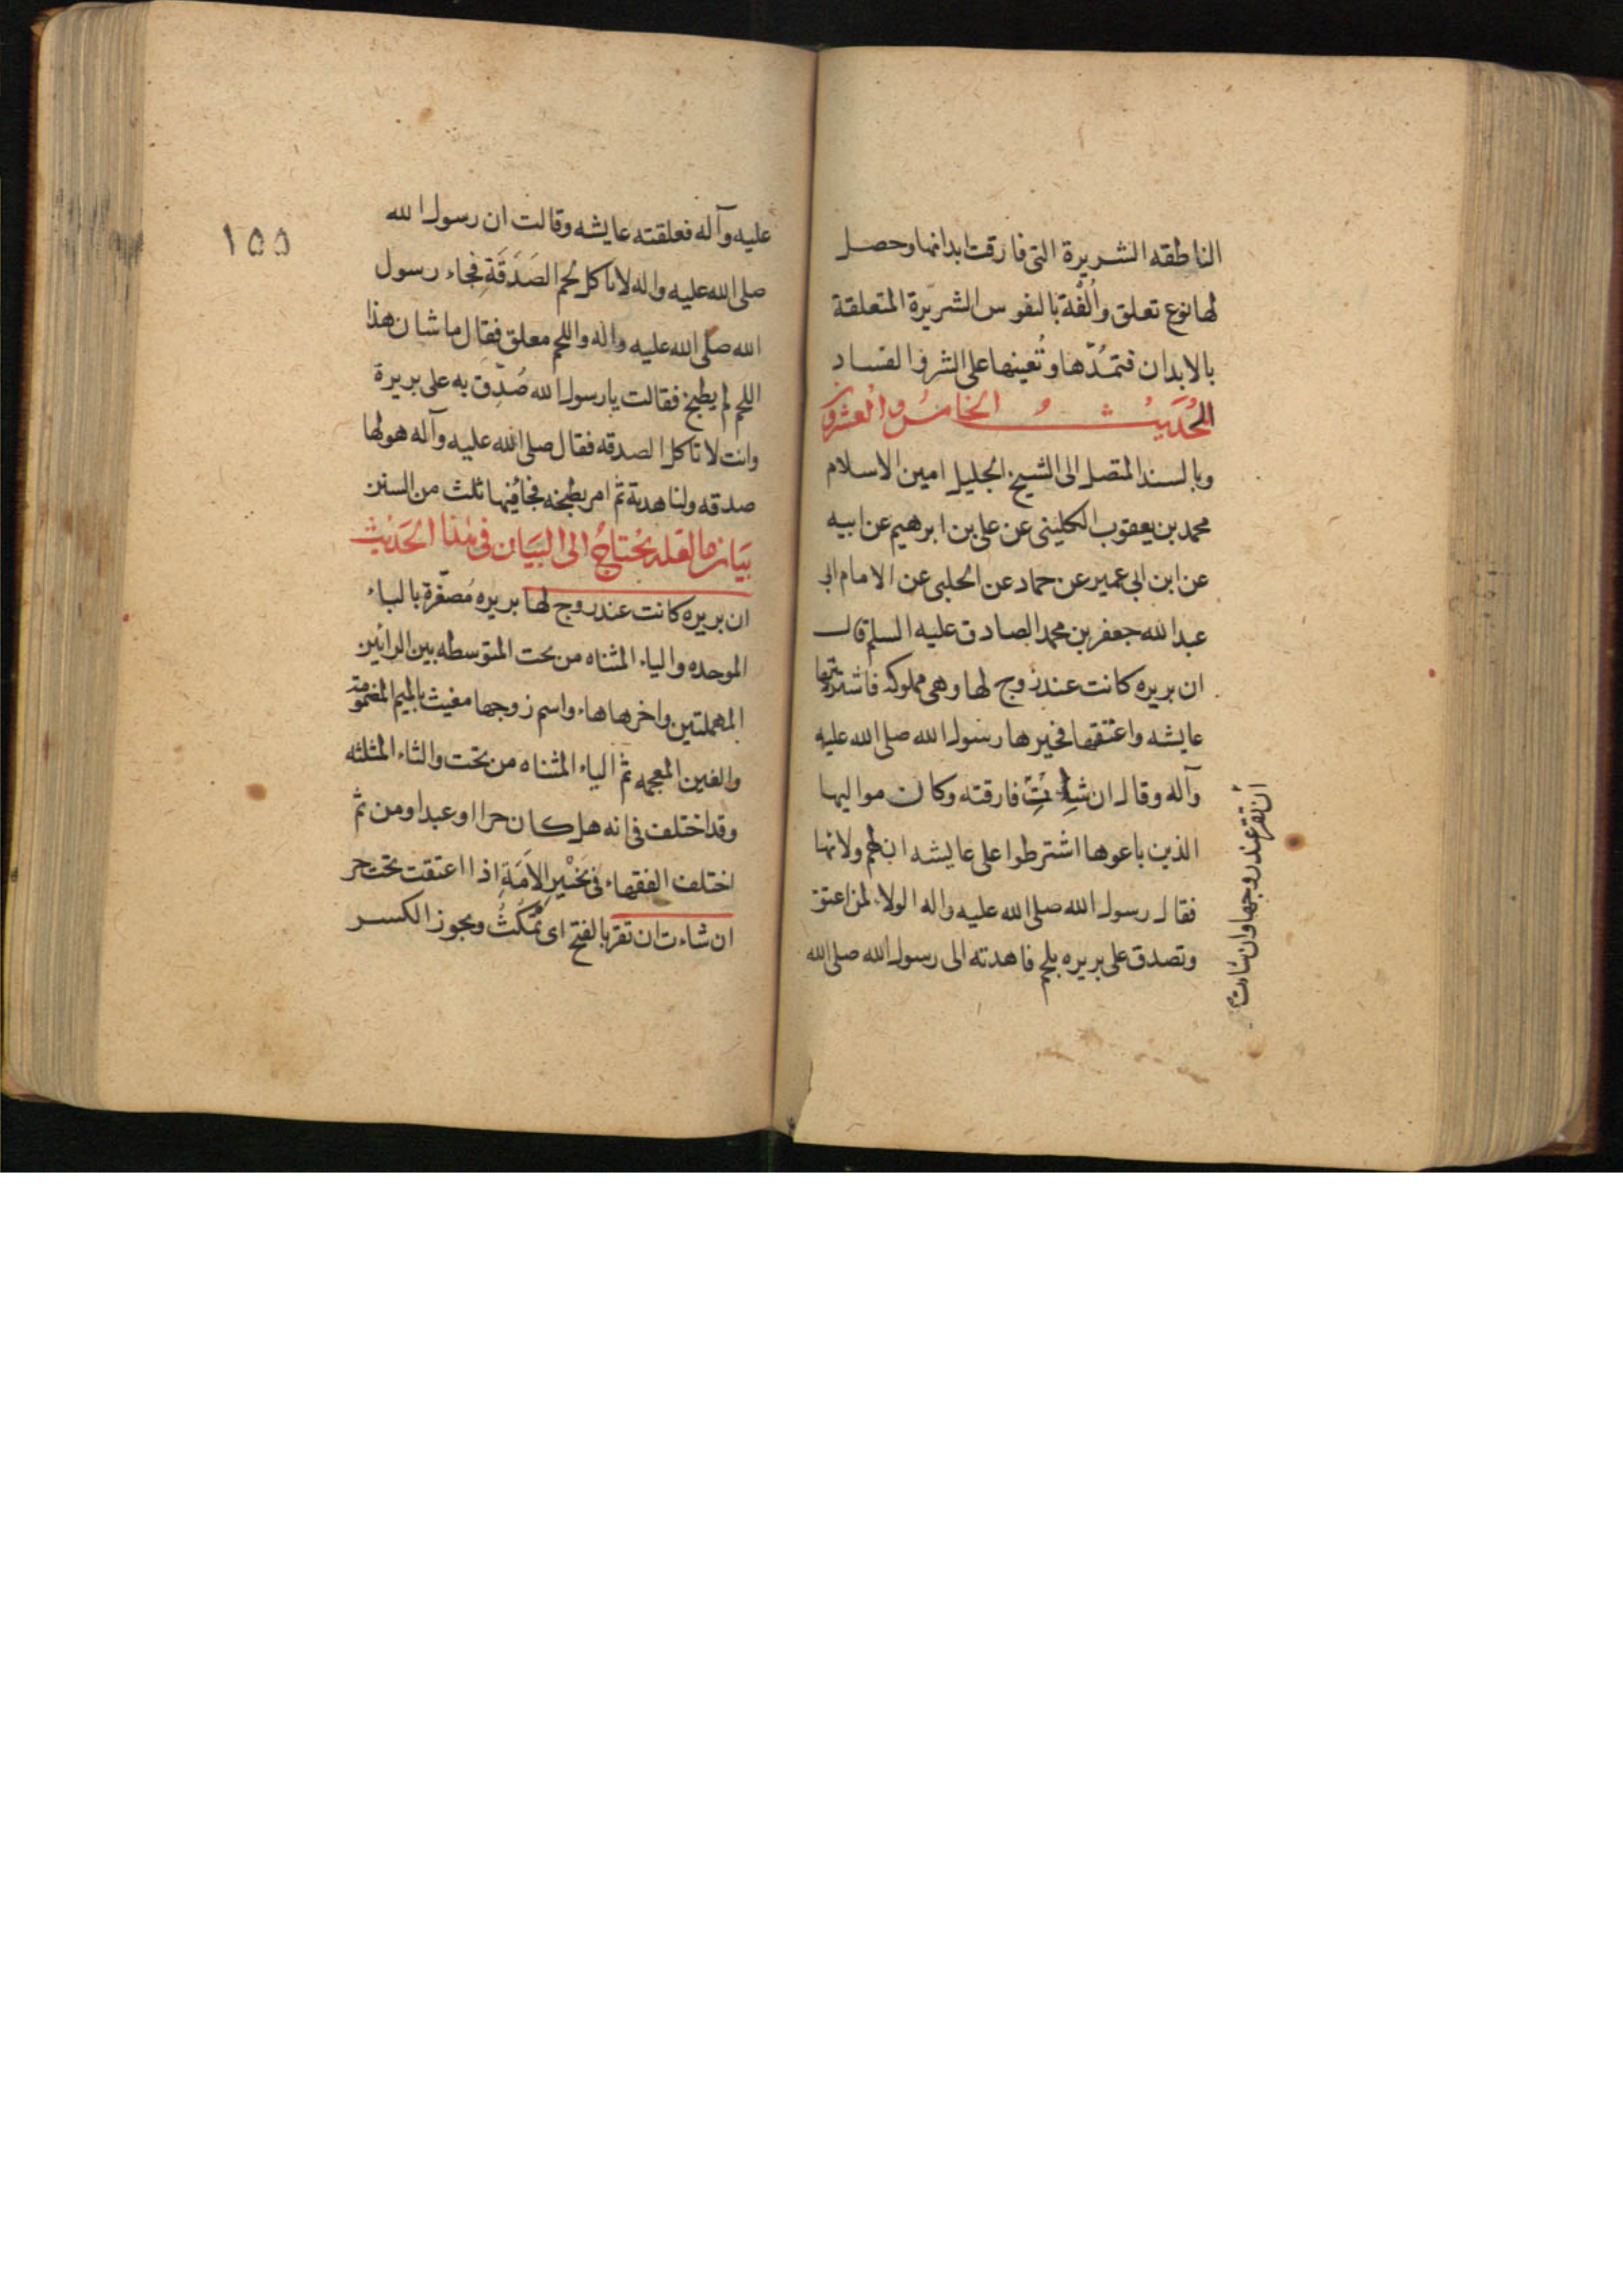 الناطقه الشريرة التى فارقت ابدانها وحصل
لها نوع تعلق وأُلفة بالنفوس الشريرة المتعلقة
بالابدان فتمُدّها وتُعينها على الشر والفساد
الحُدَيثُ الخامسُ والعشرون
وبالسند المتصل الى الشيخ الجليل امين الاسلام
محمد بن يعقوب الكلينى عن على بن ابرهيم عن ابيه
عن ابن ابى عمير عن حماد عن الحلبى عن الامام ابى
عبد الله جعفر بن محمد الصادق عليه السلم قال
ان بريره كانت عند زوج لها وهى مملوكه فاشترتها
عايشه واعتقها فخيرها رسول الله صلى الله عليه
وآله وقال ان شاءت فارقته وكان مواليها
الذين باعوها اشترطوا على عايشه ان لهم ولائها
فقال رسول الله صلى الله عليه واله الولاء لمن اعتق
وتصدق على بريره بلحم فاهدته الى رسول الله صلى الله
أن تقر عند زوجها وان شاءت
١٥٥
عليه وآله فعلقته عايشه وقالت ان رسول الله
صلى الله عليه واله لا ياكل لحم الصَدَقَةِ فجاء رسول
الله صلى الله عليه واله واللحم معلق فقال ما شان هذا
اللحم لم يطبخ فقالت يا رسول الله صُدِّق به على بريرة
وانت لا تاكل الصدقه فقال صلى الله عليه وآله هو لها
صدقه ولنا هدية ثم امر بطبخه فجا فيها ثلث من السنن
بَيَان ما لعله يُحْتاجُ الى البَيَان فى هذا الحَدَيث
ان بريره كانت عند زوج لها بريره مُصغّرة بالباء
الموحده والياء المثناه من تحت المتوسطه بين الرائين
المهملتين واخرها هاء واسم زوجها مغيث بالميم المضمومة
والغين المعجمه ثم الياء المثناه من تحت والثاء المثلثه
وقد اختلف فى انه هل كان حرا او عبدا ومن ثم
اختلف الفقهاء فى تخْيير الاَمَةِ اذا اعتقت تحت حر
ان شاءت ان تقر بالفتح اى تمْكُثُ ويجوز الكسر